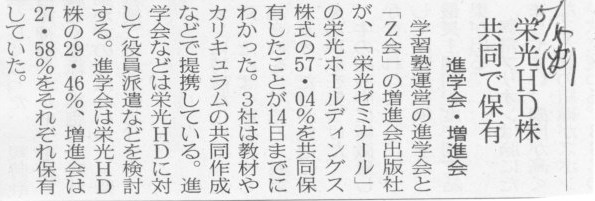 5/15(土)
栄光HD株
共同で保有
進学会・増進会
学習塾運営の進学会と
「Z会」の増進会出版社
が、「栄光ゼミナール」
の栄光ホールディングス
株式の57・04%を共同保
有したことが14日までに
わかった。3社は教材や
カリキュラムの共同作成
などで提携している。進
学会などは栄光HDに対
して役員派遣などを検討
する。進学会は栄光HD
株の29・46%、増進会は
27・58%をそれぞれ保有
していた。